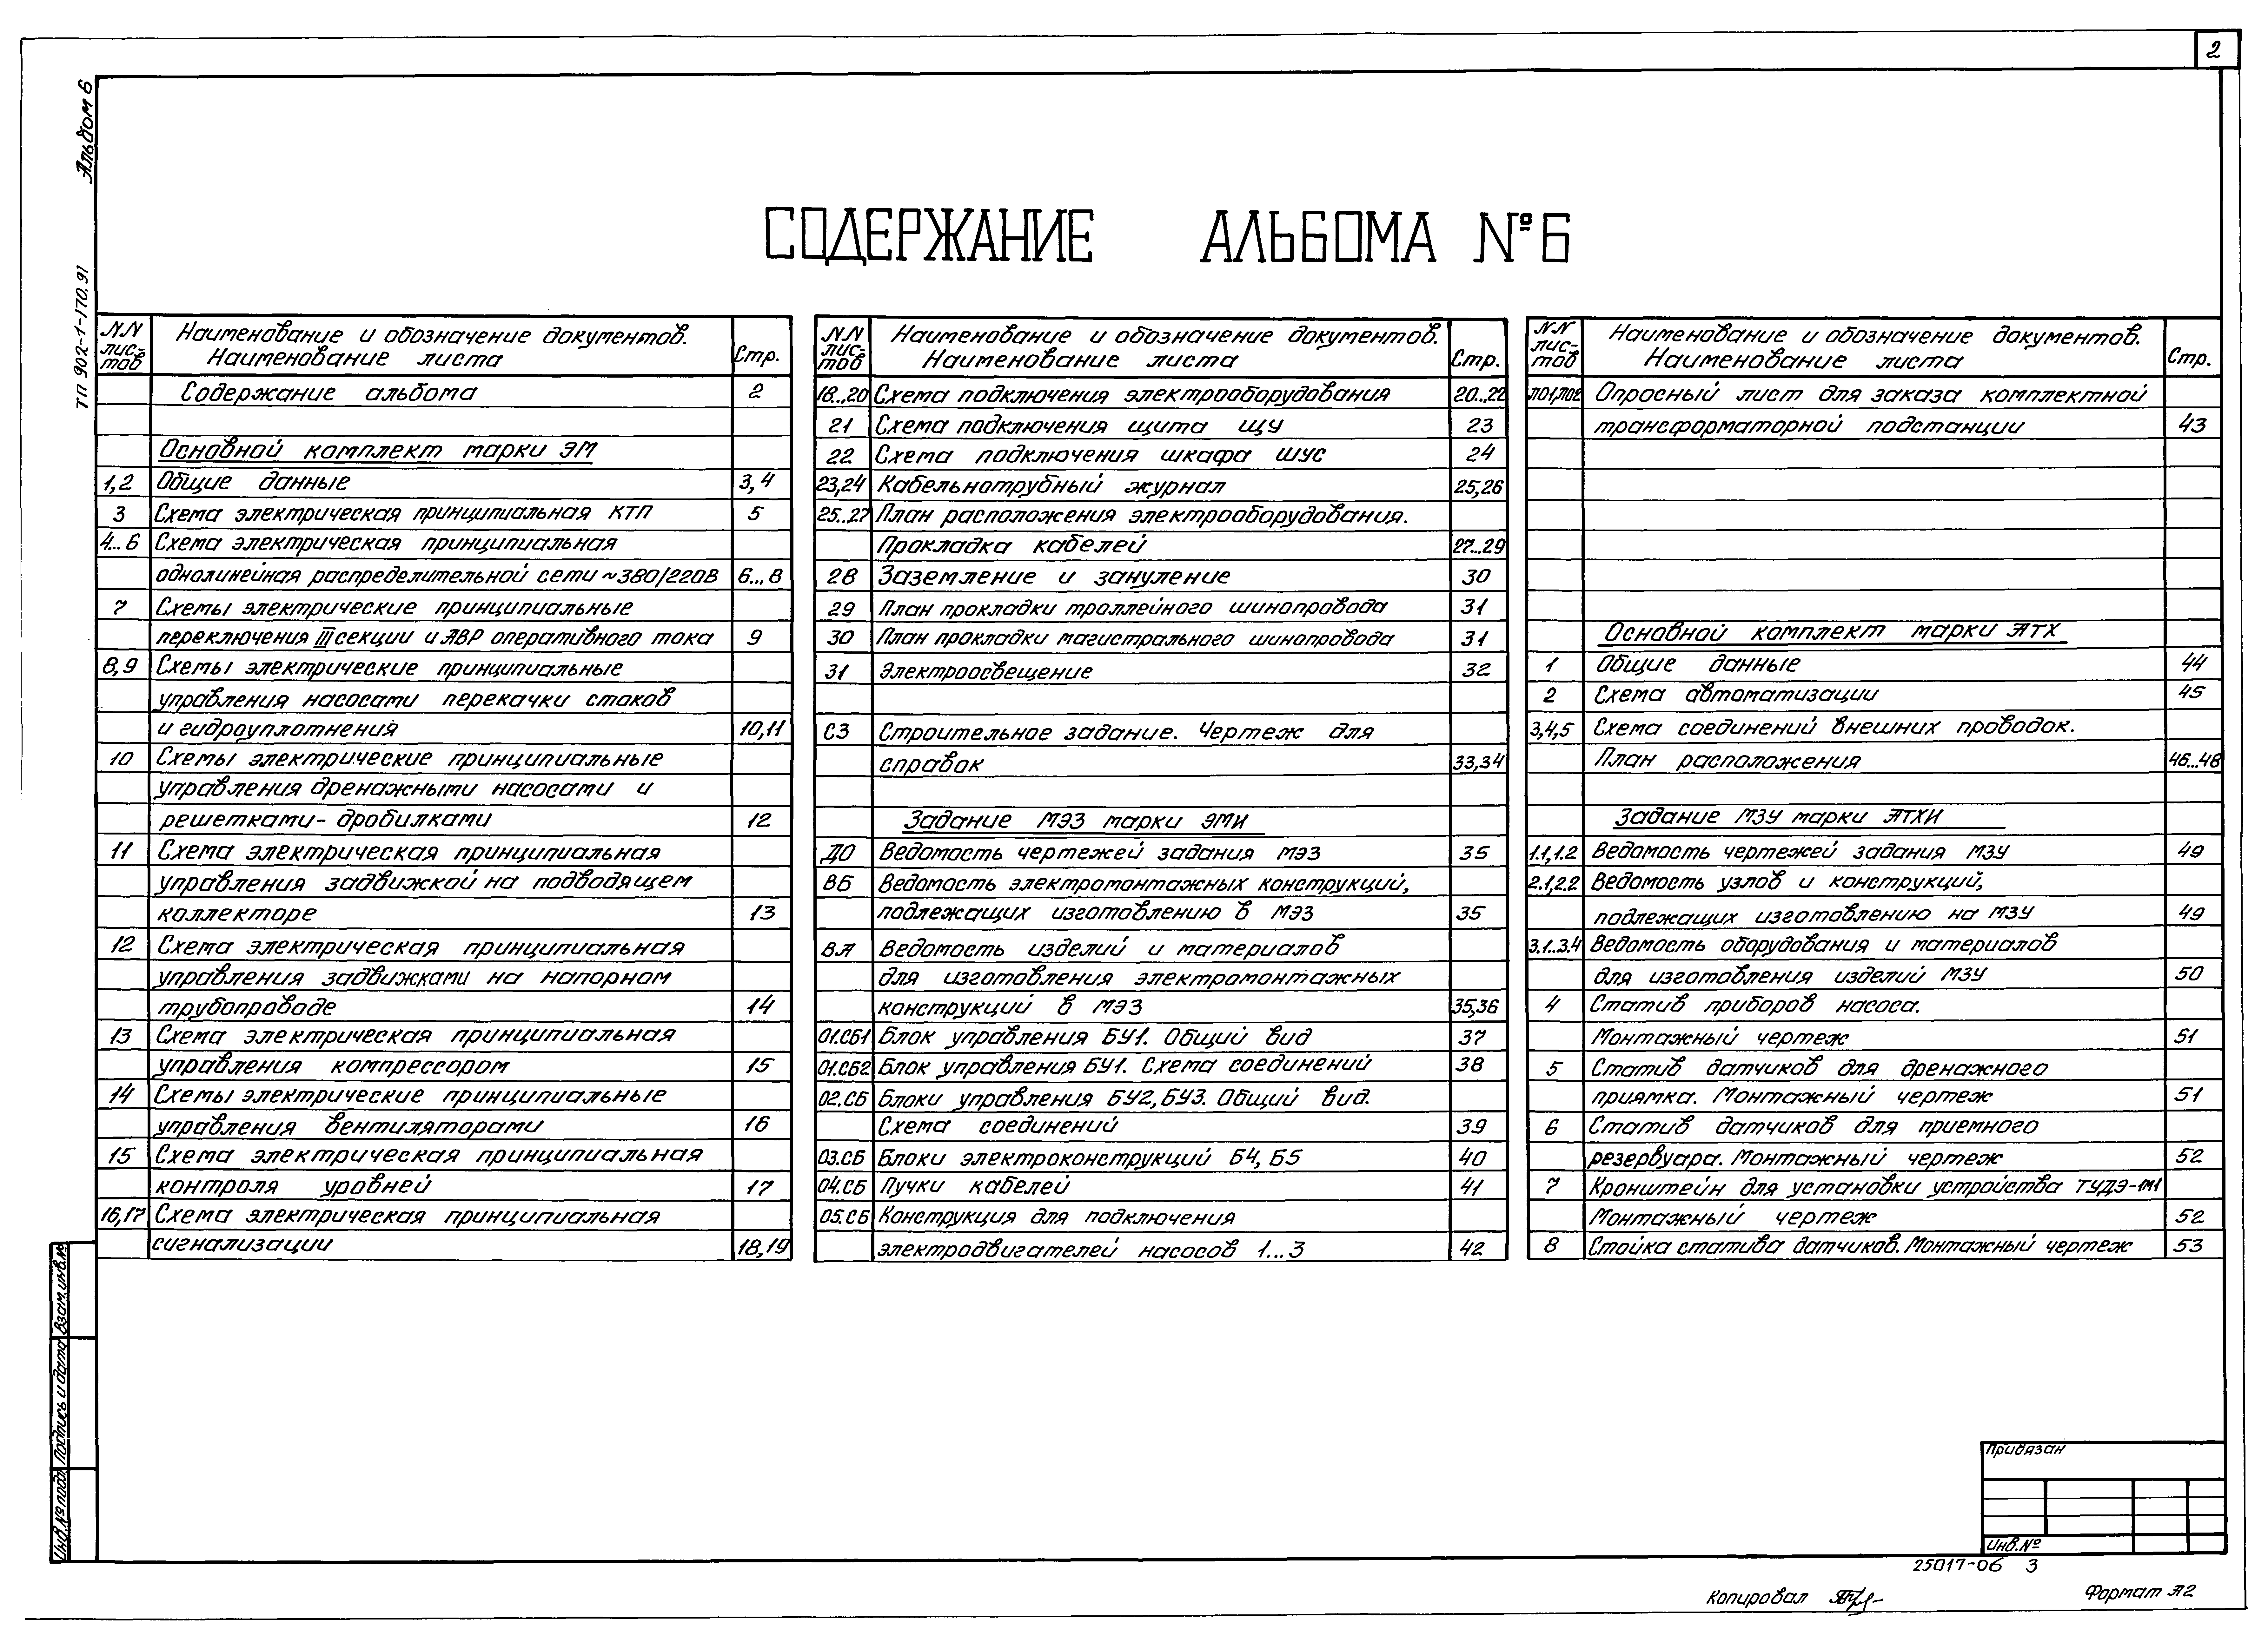 2
Альбом 6
ТП 902-1-170.91
СОДЕРЖАНИЕ АЛЬБОМА №6
N.N лис-тов Наименование и обозначение документов. Наименование листа Стр.
Содержание альбома 2
Основной комплект марки ЭМ
1,2 Общие данные 3,4
3 Схема электрическая принципиальная КТП 5
4...6 Схема электрическая принципиальная
однолинейная распределительной сети ~380/220В 6...8
7 Схемы электрические принципиальные
переключения III секции и АВР оперативного тока 9
8,9 Схемы электрические принципиальные
управления насосами перекачки стоков
и гидроуплотнения 10,11
10 Схемы электрические принципиальные
управления дренажными насосами и
решетками-дробилками 12
11 Схема электрическая принципиальная
управления задвижкой на подводящем
коллекторе 13
12 Схема электрическая принципиальная
управления задвижками на напорном
трубопроводе 14
13 Схема электрическая принципиальная
управления компрессором 15
14 Схемы электрические принципиальные
управления вентиляторами 16
15 Схема электрическая принципиальная
контроля уровней 17
16,17 Схема электрическая принципиальная
сигнализации 18,19
N.N лис-тов Наименование и обозначение документов. Наименование листа Стр.
18...20 Схема подключения электрооборудования 20...22
21 Схема подключения щита ЩУ 23
22 Схема подключения шкафа ШУС 24
23,24 Кабельнотрубный журнал 25,26
25...27 План расположения электрооборудования.
Прокладка кабелей 27...29
28 Заземление и зануление 30
29 План прокладки троллейного шинопровода 31
30 План прокладки магистрального шинопровода 31
31 Электроосвещение 32
СЗ Строительное задание. Чертеж для
справок 33,34
Задание МЭЗ марки ЭМИ
ДО Ведомость чертежей задания МЭЗ 35
ВБ Ведомость электромонтажных конструкций,
подлежащих изготовлению в МЭЗ 35
ВА Ведомость изделий и материалов
для изготовления электромонтажных
конструкций в МЭЗ 35,36
01.СБ1 Блок управления БУ1. Общий вид 37
01.СБ2 Блок управления БУ1. Схема соединений 38
02.СБ Блоки управления БУ2, БУ3. Общий вид.
Схема соединений 39
03.СБ Блоки электроконструкций Б4, Б5 40
04.СБ Пучки кабелей 41
05.СБ Конструкция для подключения
электродвигателей насосов 1...3 42
N.N лис-тов Наименование и обозначение документов. Наименование листа Стр.
ЛО1,ЛО2 Опросный лист для заказа комплектной
трансформаторной подстанции 43
Основной комплект марки АТХ
1 Общие данные 44
2 Схема автоматизации 45
3,4,5 Схема соединений внешних проводок.
План расположения 46...48
Задание МЗУ марки АТХИ
1.1,1.2 Ведомость чертежей задания МЗУ 49
2.1,2.2 Ведомость узлов и конструкций,
подлежащих изготовлению на МЗУ 49
3.1...3.4 Ведомость оборудования и материалов
для изготовления изделий МЗУ 50
4 Статив приборов насоса.
Монтажный чертеж 51
5 Статив датчиков для дренажного
приямка. Монтажный чертеж 51
6 Статив датчиков для приемного
резервуара. Монтажный чертеж 52
7 Кронштейн для установки устройства ТУДЭ-1М1
Монтажный чертеж 52
8 Стойка статива датчиков. Монтажный чертеж 53
Взам.инв.№
Подпись и дата
Инв.№ подл.
Привязан
Инв.№
25017-06 3
Копировал
Формат А2